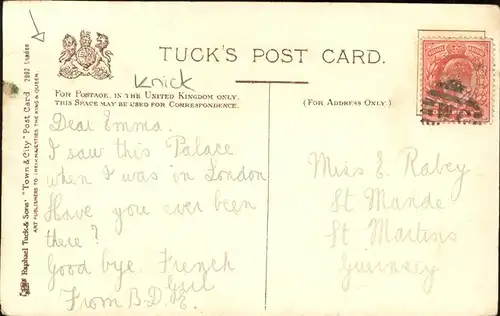 TUCK'S POST CARD.
Knick
FOR POSTAGE, IN THE UNITED KINGDOM ONLY,
THIS SPACE MAY BE USED FOR CORRESPONDENCE.
(FOR ADDRESS ONLY.)
Raphael Tuck & Sons' "Town & City" Post Card 2002 London
ART PUBLISHERS TO THEIR MAJESTIES THE KING & QUEEN.
Dear Emma.
I saw this Palace
when I was in London
Have you ever been
there?
Good bye. French
Girl
From B.D.E.
Miss E. Rabey
St Mande
St Martins
Guernsey